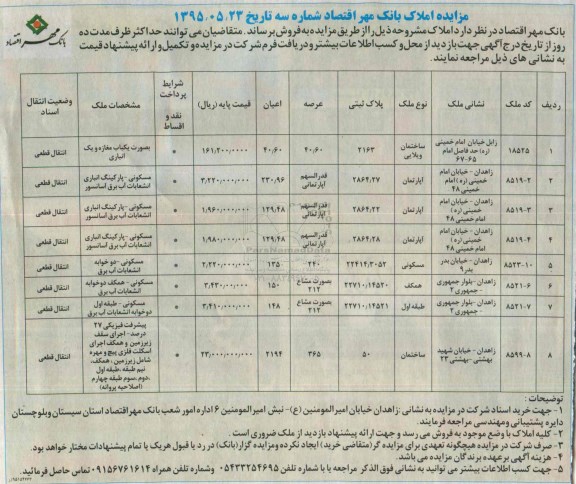 مزایده املاک بانک مهر اقتصاد شماره سه تاریخ ۱۳۹۵.۰۵.۲۳
بانک مهر اقتصاد
بانک مهر اقتصاد در نظر دارد املاک مشروحه ذیل را از طریق مزایده به فروش برساند. متقاضیان می توانند حداکثر ظرف مدت ده
روز از تاریخ درج آگهی جهت بازدید از محل و کسب اطلاعات بیشتر و دریافت فرم شرکت در مزایده و تکمیل و ارائه پیشنهاد قیمت
به نشانی های ذیل مراجعه نمایند.
ردیف کد ملک نشانی ملک نوع ملک پلاک ثبتی عرصه اعیان قیمت پایه (ریال) شرایط پرداخت نقد و اقساط مشخصات ملک وضعیت انتقال اسناد
۱ ۱۸۵۲۵ زابل خیابان امام خمینی (ره) حد فاصل امام ۶۵-۶۷ ساختمان ویلایی ۲۱۶۳ ۴۰,۶۰ ۴۰,۶۰ ۱۶۱,۲۰۰,۰۰۰ * بصورت یکباب مغازه و یک انباری انتقال قطعی
۲ ۸۵۱۹-۲ زاهدان - خیابان امام خمینی (ره) امام خمینی ۴۸ آپارتمان ۲۸۶۴,۲۷ قدرالسهم آپارتمانی ۲۳۰,۹۶ ۳,۲۲۰,۰۰۰,۰۰۰ * مسکونی -پارکینگ انباری انشعابات آب برق آسانسور انتقال قطعی
۳ ۸۵۱۹-۳ زاهدان - خیابان امام خمینی (ره) امام خمینی ۴۸ آپارتمان ۲۸۶۴,۲۲ قدرالسهم آپارتمانی ۱۲۹,۴۸ ۱,۹۶۰,۰۰۰,۰۰۰ * مسکونی -پارکینگ انباری انشعابات آب برق آسانسور انتقال قطعی
۴ ۸۵۱۹-۴ زاهدان - خیابان امام خمینی (ره) امام خمینی ۴۸ آپارتمان ۲۸۶۴,۲۸ قدرالسهم آپارتمانی ۱۲۹,۴۸ ۱,۹۸۰,۰۰۰,۰۰۰ * مسکونی -پارکینگ انباری انشعابات آب برق آسانسور انتقال قطعی
۵ ۸۵۲۳-۱۰ زاهدان - خیابان بدر بدر ۹ مسکونی ۲۲۴۱۴,۳۰۵۲ ۲۴۰ ۱۳۵ ۲,۲۲۰,۰۰۰,۰۰۰ * مسکونی -دوخوابه انشعابات آب برق انتقال قطعی
۶ ۸۵۲۱-۶ زاهدان -بلوار جمهوری - جمهوری ۲ همکف ۲۲۷۱۰,۱۴۵۲۰ بصورت مشاع ۲۱۲ ۱۵۰ ۳,۴۳۰,۰۰۰,۰۰۰ * مسکونی - همکف دوخوابه انشعابات آب برق انتقال قطعی
۷ ۸۵۲۱-۷ زاهدان -بلوار جمهوری - جمهوری ۲ طبقه اول ۲۲۷۱۰,۱۴۵۲۱ بصورت مشاع ۲۱۲ ۱۴۸ ۳,۴۱۰,۰۰۰,۰۰۰ * مسکونی - طبقه اول دوخوابه انشعابات آب برق انتقال قطعی
۸ ۸۵۹۹-۸ زاهدان - خیابان شهید بهشتی -بهشتی ۲۳ ساختمان ۵۰ ۳۶۵ ۲۱۹۴ ۲۳,۰۰۰,۰۰۰,۰۰۰ * پیشرفت فیزیکی ۲۷ درصد - اجرای سقف زیرزمین و همکف اجرای اسکلت فلزی پیچ و مهره شامل زیرزمین ، همکف، نیم طبقه ،طبقه اول ،دوم ،سوم طبقه چهارم (اصلاحیه پروانه) انتقال قطعی
توضیحات :
۱ - جهت خرید اسناد شرکت در مزایده به نشانی :زاهدان خیابان امیرالمومنین (ع)- نبش امیرالمومنین ۶ اداره امور شعب بانک مهر اقتصاد استان سیستان و بلوچستان
دایره پشتیبانی و مهندسی مراجعه فرمایند.
۲ - کلیه املاک با وضع موجود به فروش می رسد و جهت ارائه پیشنهاد بازدید از ملک ضروری است .
۳ - صرف شرکت در مزایده هیچگونه تعهدی برای مزایده گر(متقاضی خرید) ایجاد نکرده و مزایده گزار(بانک) در رد یا قبول هریک یا تمام پیشنهادات مختار خواهد بود.
۴ - هزینه آگهی برعهده برندگان مزایده می باشد.
۵ - جهت کسب اطلاعات بیشتر می توانید به نشانی فوق الذکر مراجعه یا با شماره تلفن ۰۵۴۳۳۲۵۴۶۹۵ وشماره تلفن همراه ۰۹۱۵۶۷۶۱۶۱۴ تماس حاصل فرمائید.